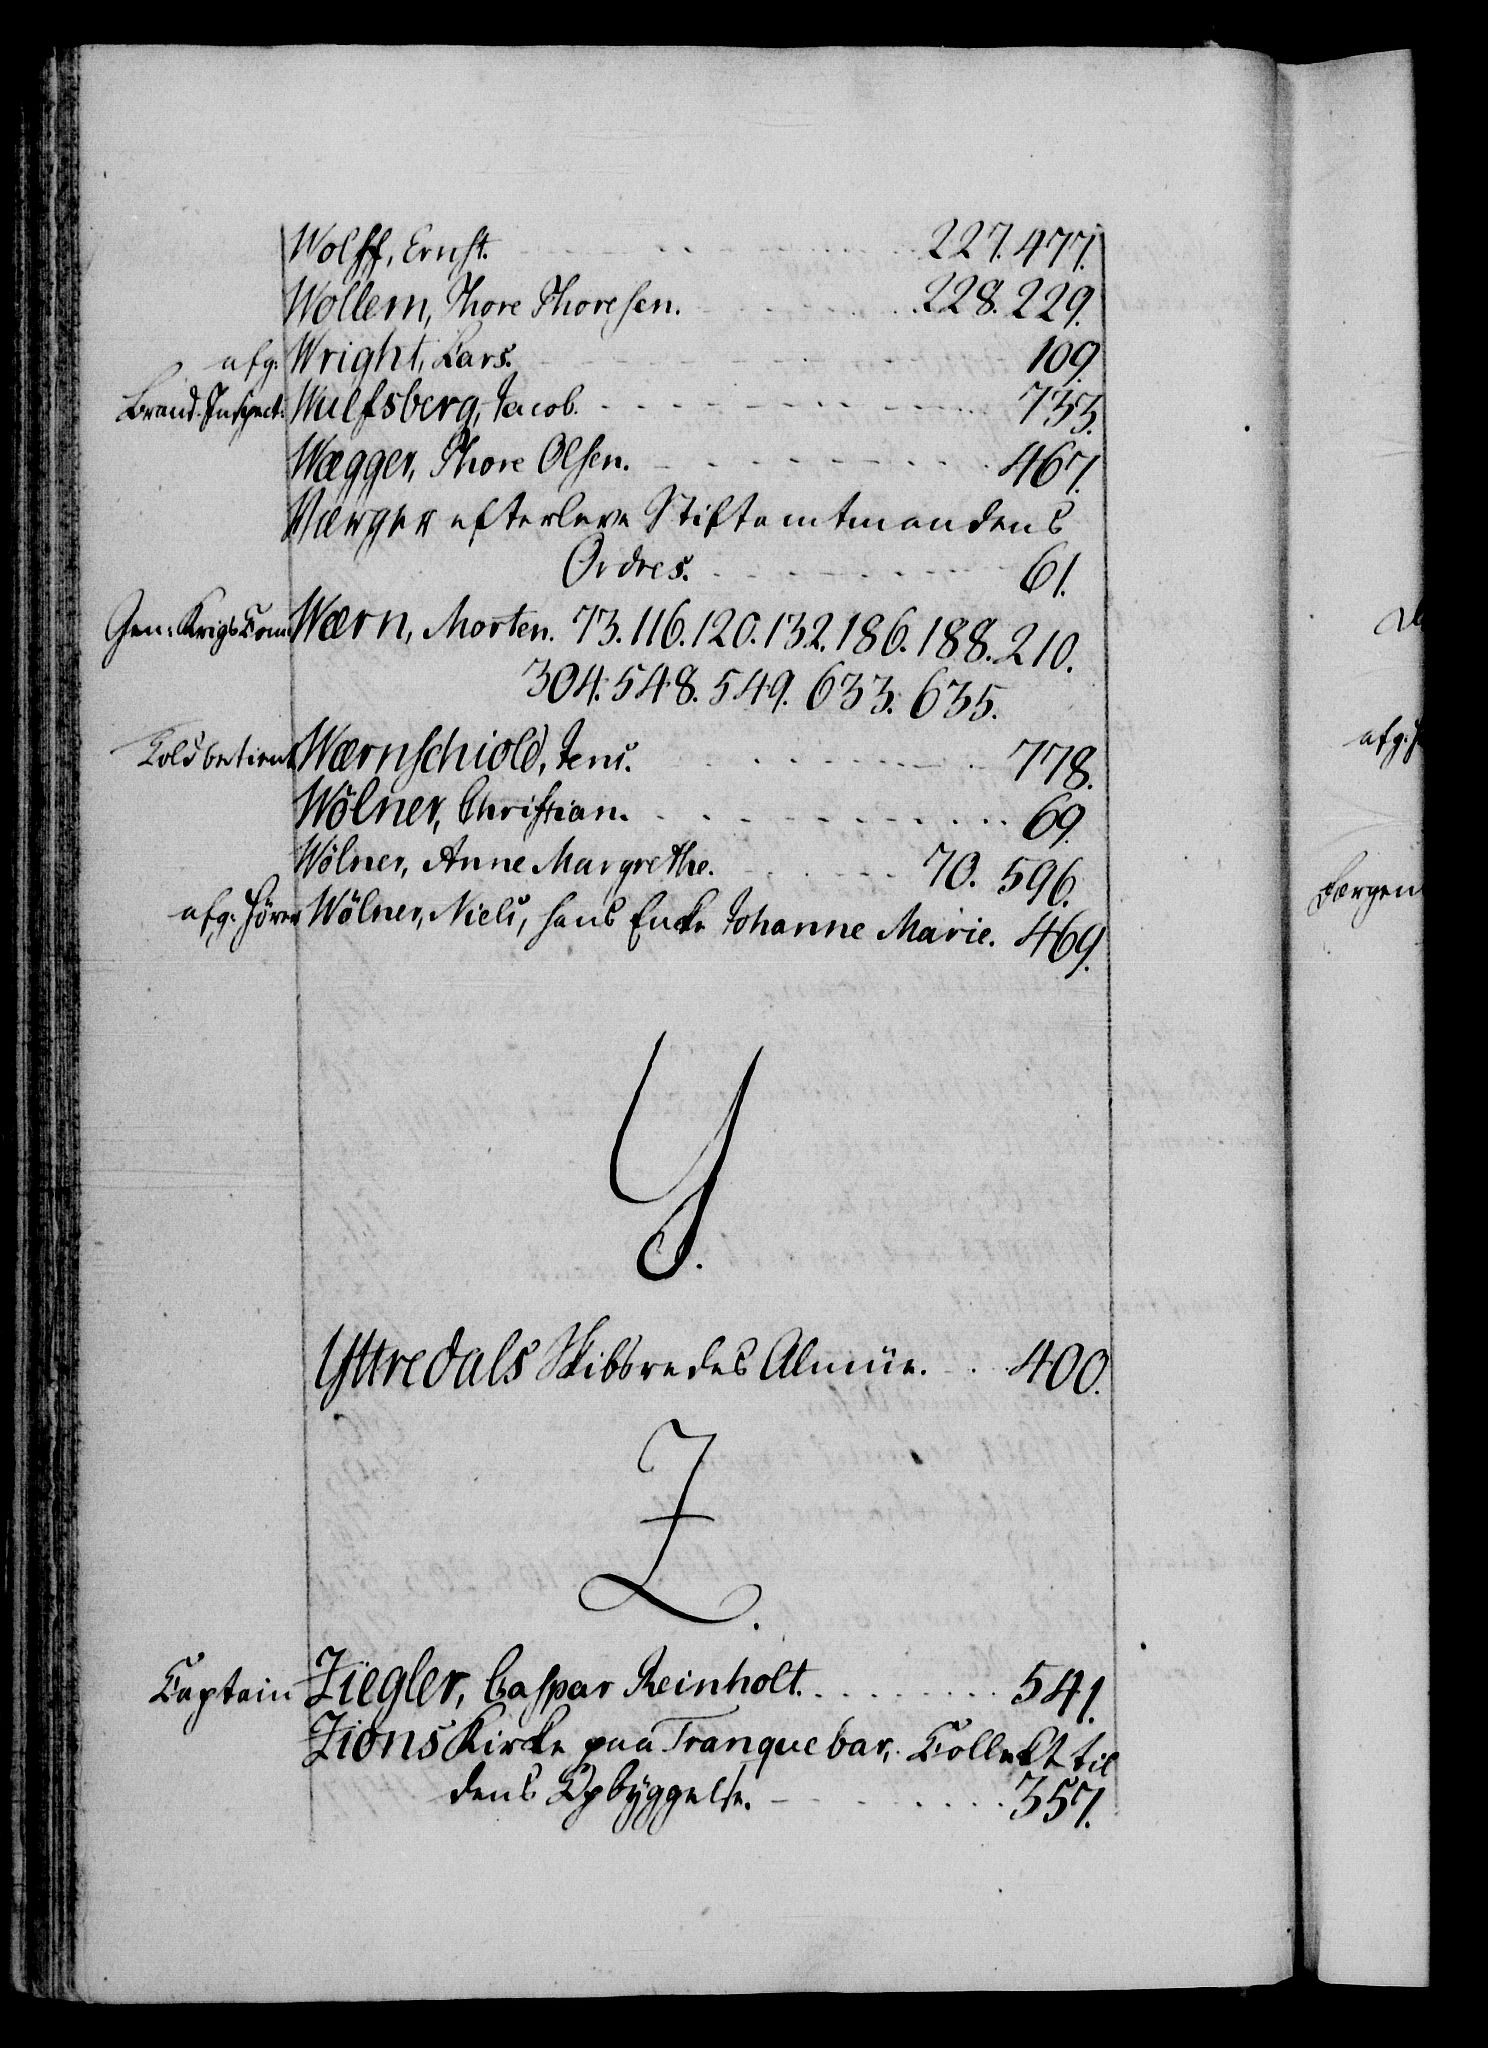 Wolff, Ernst. 227. 477.
Wollem, Thore Thoresen. 228. 229.
afg: Wright, Lars. 109.
Brand-Inspect: Wulfsberg, Jacob. 733.
Wægger, Thore Olsen. 467.
Værger efterleve Stiftamtmandens
Ordres. 61.
Gen: Krigs Com Wærn, Morten. 73. 116. 120. 132. 186. 188. 210.
304. 548. 549. 633. 635.
Toldbetient Wærnschiold, Jens. 778.
Wölner, Christian. 69.
Wölner, Anne Margrethe. 70. 596.
afg: Hörer Wölner, Niels, hans Enke Johanne Marie. 469.
Y.
Yttredals Skibredes Almüe. 400.
Z.
Captain Ziegler, Caspar Reinholt. 541.
Zions Kirke paa Tranquebar, Collekt til
dens Opbyggelse. 357.
afg:
Bergen